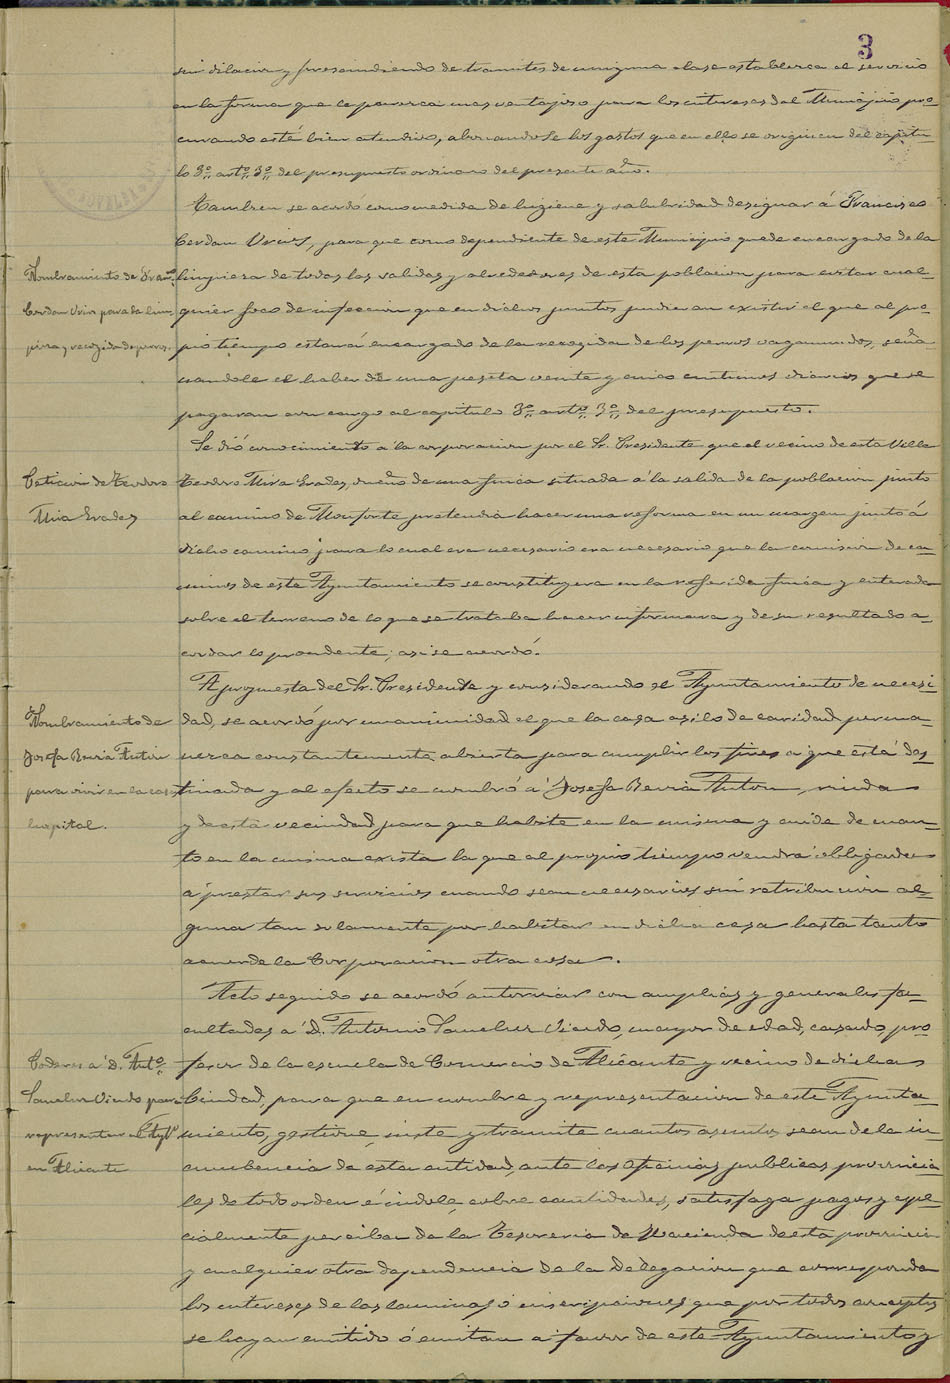 3
sin dilacion y prescindiendo de tramites de ninguna clase establezca el servicio
en la forma que le parezca mas ventajoso para los intereses del Municipio pro-
curando esté bien atendido, abonandose los gastos que en ello se originen del capitu-
lo 3º artº 3º del presupuesto ordinario del presente año.
Tambien se acordó como medida de higiene y salubridad designar á Francisco
Cerdan Urios, para que como dependiente de este Municipio quede encargado de la
Nombramiento de Franº
limpieza de todas las salidas y alrededores de esta poblacion para evitar cual-
Cerdan Urios para la lim
quier foco de infeccion que en dichos puntos pudieran existir el que al pro-
pieza y recogida de perros.
pio tiempo estará encargado de la recogida de los perros vagamundos, seña-
nandole el haber de una peseta veinte y cinco centimos diarios que se
pagaran con cargo al capitulo 3º artº 3º del presupuesto.
Se dió conocimiento a la corporacion por el Sr. Presidente que el vecino de esta Villa
Peticion de Teodoro
Teodoro Mira Grades, dueño de una finca situada á la salida de la poblacion junto
Mira Grades
al camino de Monforte pretendia hacer una reforma en un margen junto á
dicho camino para lo cual era necesario era necesario que la comision de ca-
minos de este Ayuntamiento se constituyera en la referida finca y enterada
sobre el terreno de lo que se trataba hacer informara y de su resultado a-
cordar lo procedente; asi se acordó.
A propuesta del Sr. Presidente y considerando el Ayuntamiento de necesi-
Nombramiento de
dad, se acordó por unanimidad el que la casa asilo de caridad perma-
Josefa Beviá Anton
nezca constantemente abierta para cumplir los fines a que está des
para vivir en la casa
tinada y al efecto se nombró á Josefa Beviá Anton, viuda
hospital.
y de esta vecindad para que habite en la misma y cuide de cuan-
to en la misma exista la que al propio tiempo vendrá obligada
a prestar sus servicios cuando sean necesarios sin retribucion al-
guna tan solamente por habitar en dicha casa hasta tanto
acuerde la Corporacion otra cosa.
Acto seguido se acordó autorizar con amplias y generales fa-
cultades a D. Antonio Sanchez Oviedo, mayor de edad, casado, pro-
Poderes a D. Antº
fesor de la escuela de Comercio de Alicante y vecino de dicha
Sanchez Oviedo para
Ciudad, para que en nombre y representacion de este Ayunta-
representar el Aytº
miento, gestione, inste y tramite cuantos asuntos sean de la in-
en Alicante
cumbencia de esta entidad, ante las Oficinas publicas provincia
les de todo orden é indole, cobre cantidades, satisfaga pagos y espe-
cialmente perciba de la Tesoreria de Hacienda de esta provincia
y cualquier otra dependencia de la Delegacion que corresponda
los intereses de las laminas ó inscripciones que por todos conceptos
se hayan emitido ó emitan a favor de este Ayuntamiento y